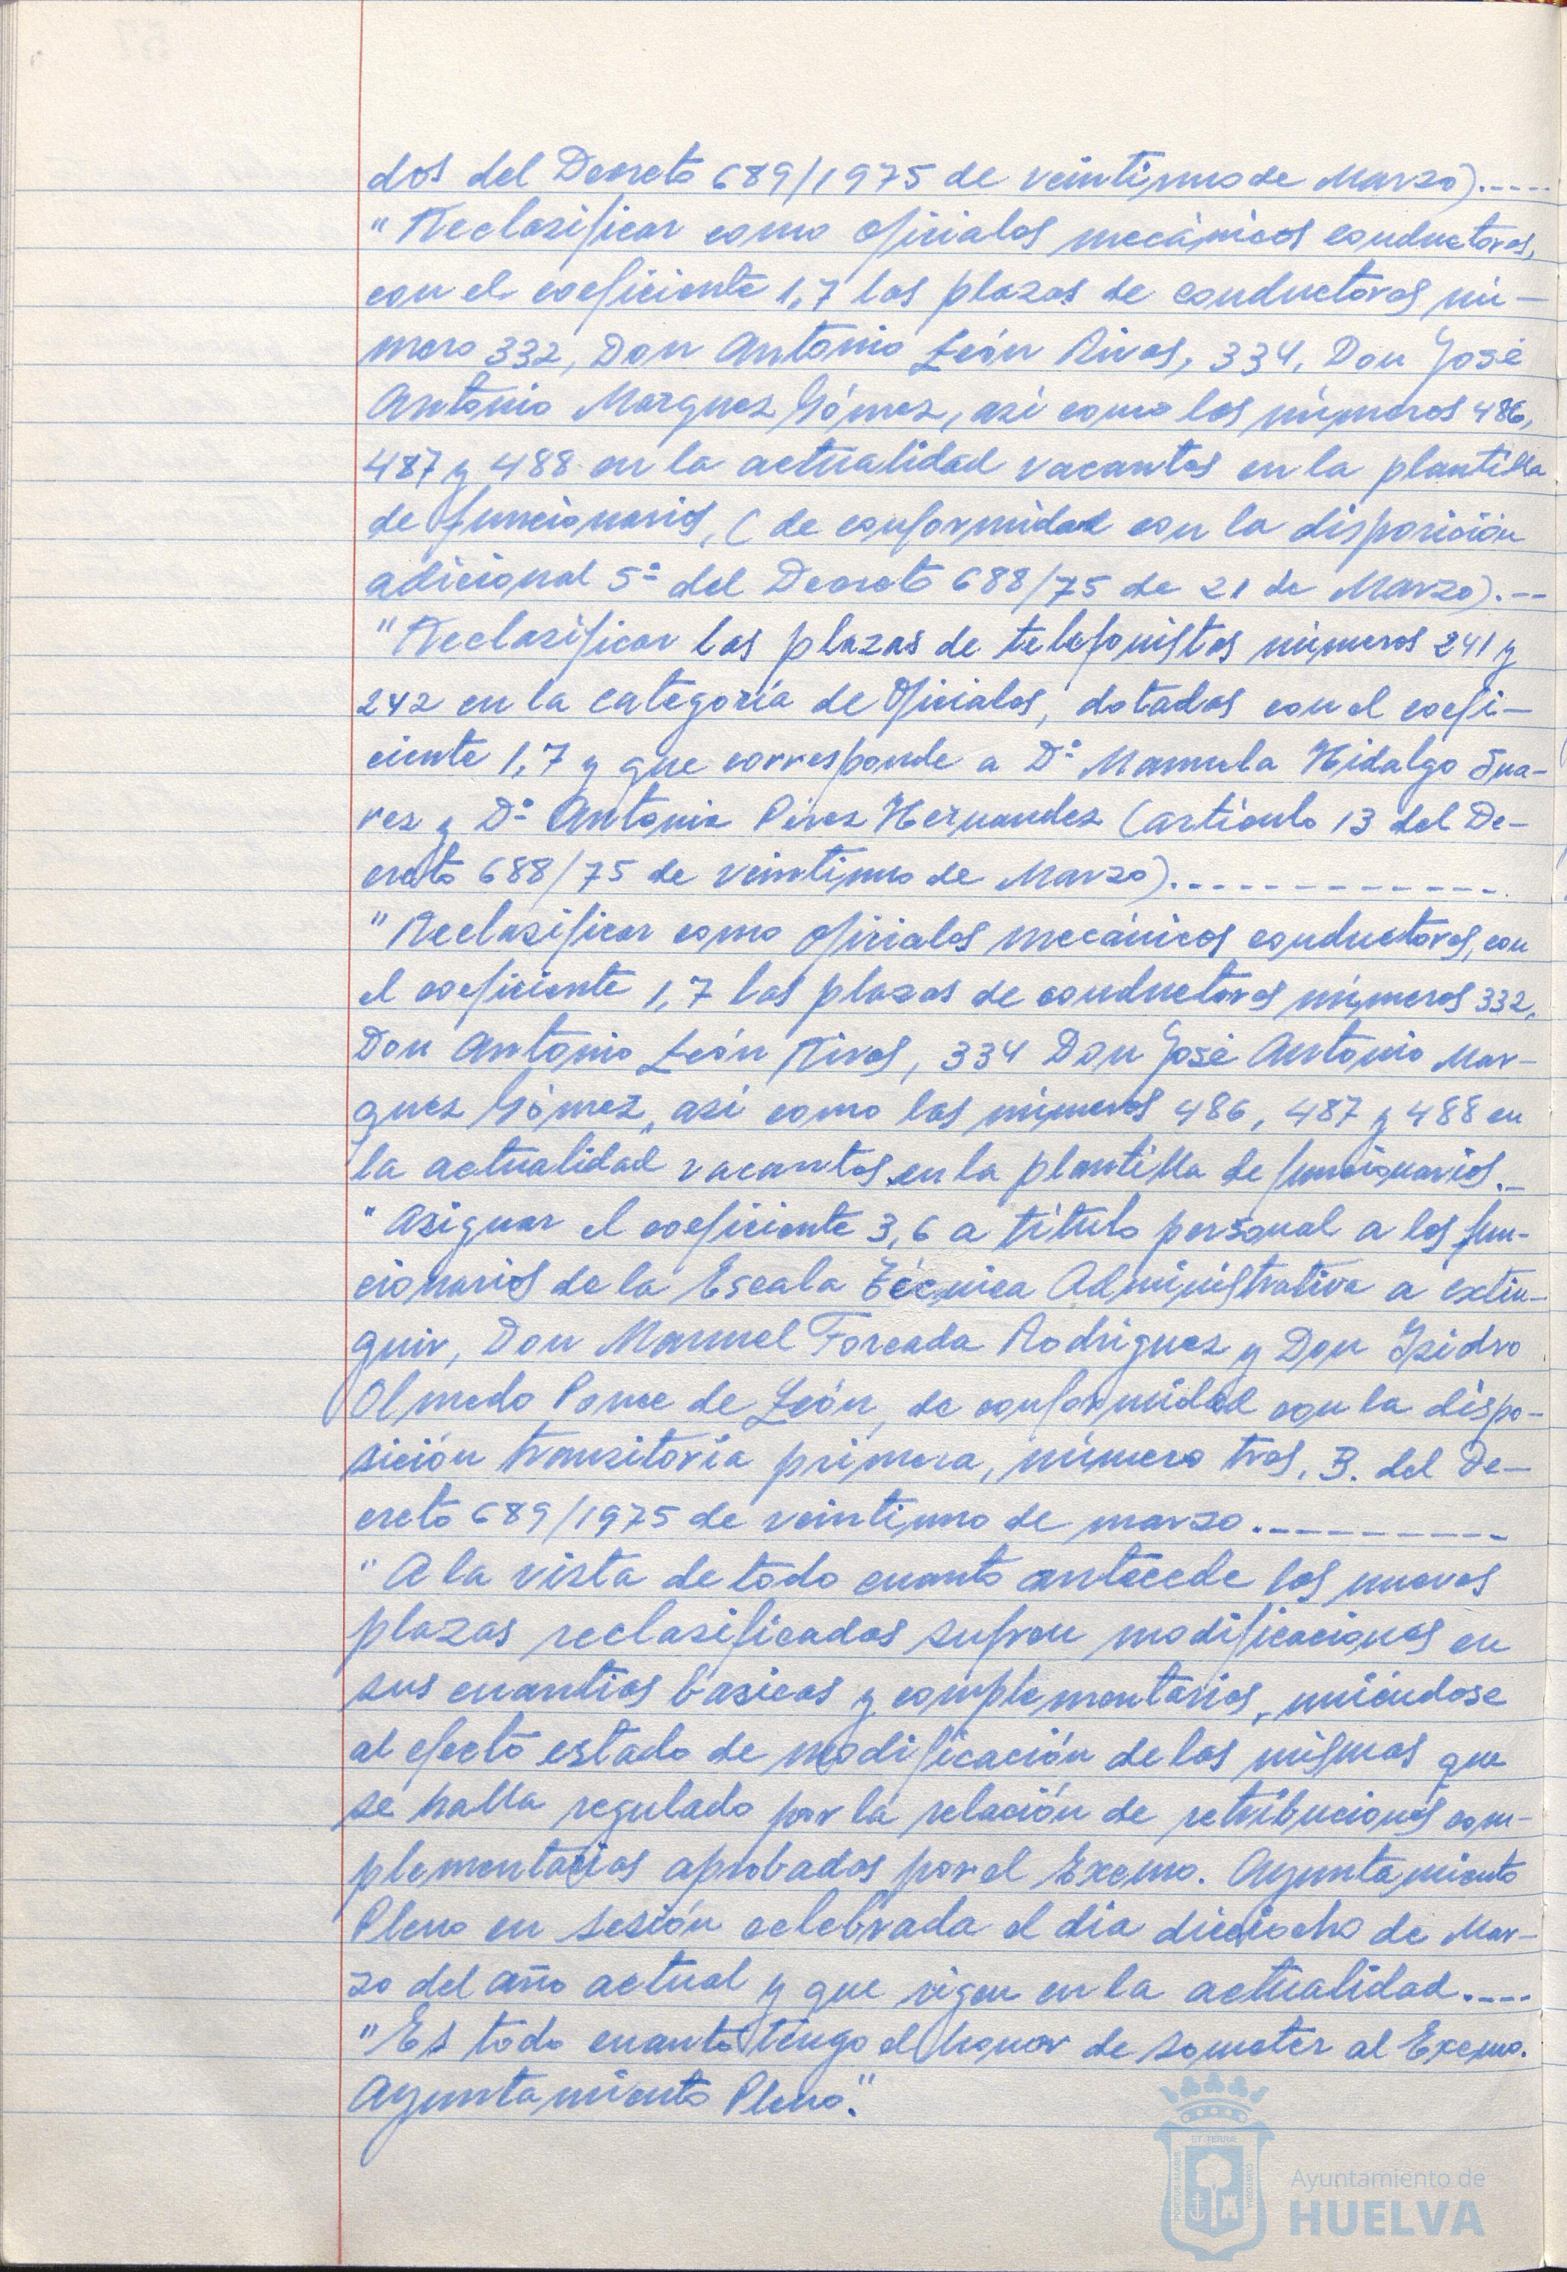 dos del Decreto 689/1975 de veintiuno de Marzo).----
"Reclasificar como oficiales mecánicos conductores,
con el coeficiente 1,7 las plazas de conductores nú-
mero 332, Don Antonio León Rivas, 334, Don José
Antonio Marquez Gómez, asi como los números 486,
487 y 488 en la actualidad vacantes en la plantilla
de funcionarios, (de conformidad con la disposición
adicional 5ª del Decreto 688/75 de 21 de Marzo).--
"Reclasificar las plazas de telefonistas números 241 y
242 en la categoría de Oficiales, dotadas con el coefi-
ciente 1,7 y que corresponde a Dª Manuela Hidalgo Sua-
rez y Dª Antonia Pérez Hernandez (artículo 13 del De-
creto 688/75 de veintiuno de Marzo).------------
"Reclasificar como oficiales mecánicos conductores, con
el coeficiente 1,7 las plazas de conductores números 332,
Don Antonio León Rivas, 334 Don José Antonio Mar-
quez Gómez, asi como los números 486, 487 y 488 en
la actualidad vacantes en la plantilla de funcionarios.-
"Asignar el coeficiente 3,6 a título personal a los fun-
cionarios de la Escala Técnica Administrativa a extin-
guir, Don Manuel Forcada Rodriguez y Don Isidro
Olmedo Ponce de León, de conformidad con la dispo-
sición transitoria primera, número tres, 3. del De-
creto 689/1975 de veintiuno de marzo.---------
"A la vista de todo cuanto antecede las nuevas
plazas reclasificadas sufren modificaciones en
sus cuantias basicas y complementarias, uniéndose
al efecto estado de modificación de las mismas que
se halla regulado por la relación de retribuciones com-
plementarias aprobadas por el Excmo. Ayuntamiento
Pleno en sesión celebrada el dia dieciocho de Mar-
zo del año actual y que rigen en la actualidad.----
"Es todo cuanto tengo el honor de someter al Excmo.
Ayuntamiento Pleno."
PORTUS MARIS
ET TERRAE
CUSTODIA
Ayuntamiento de
HUELVA